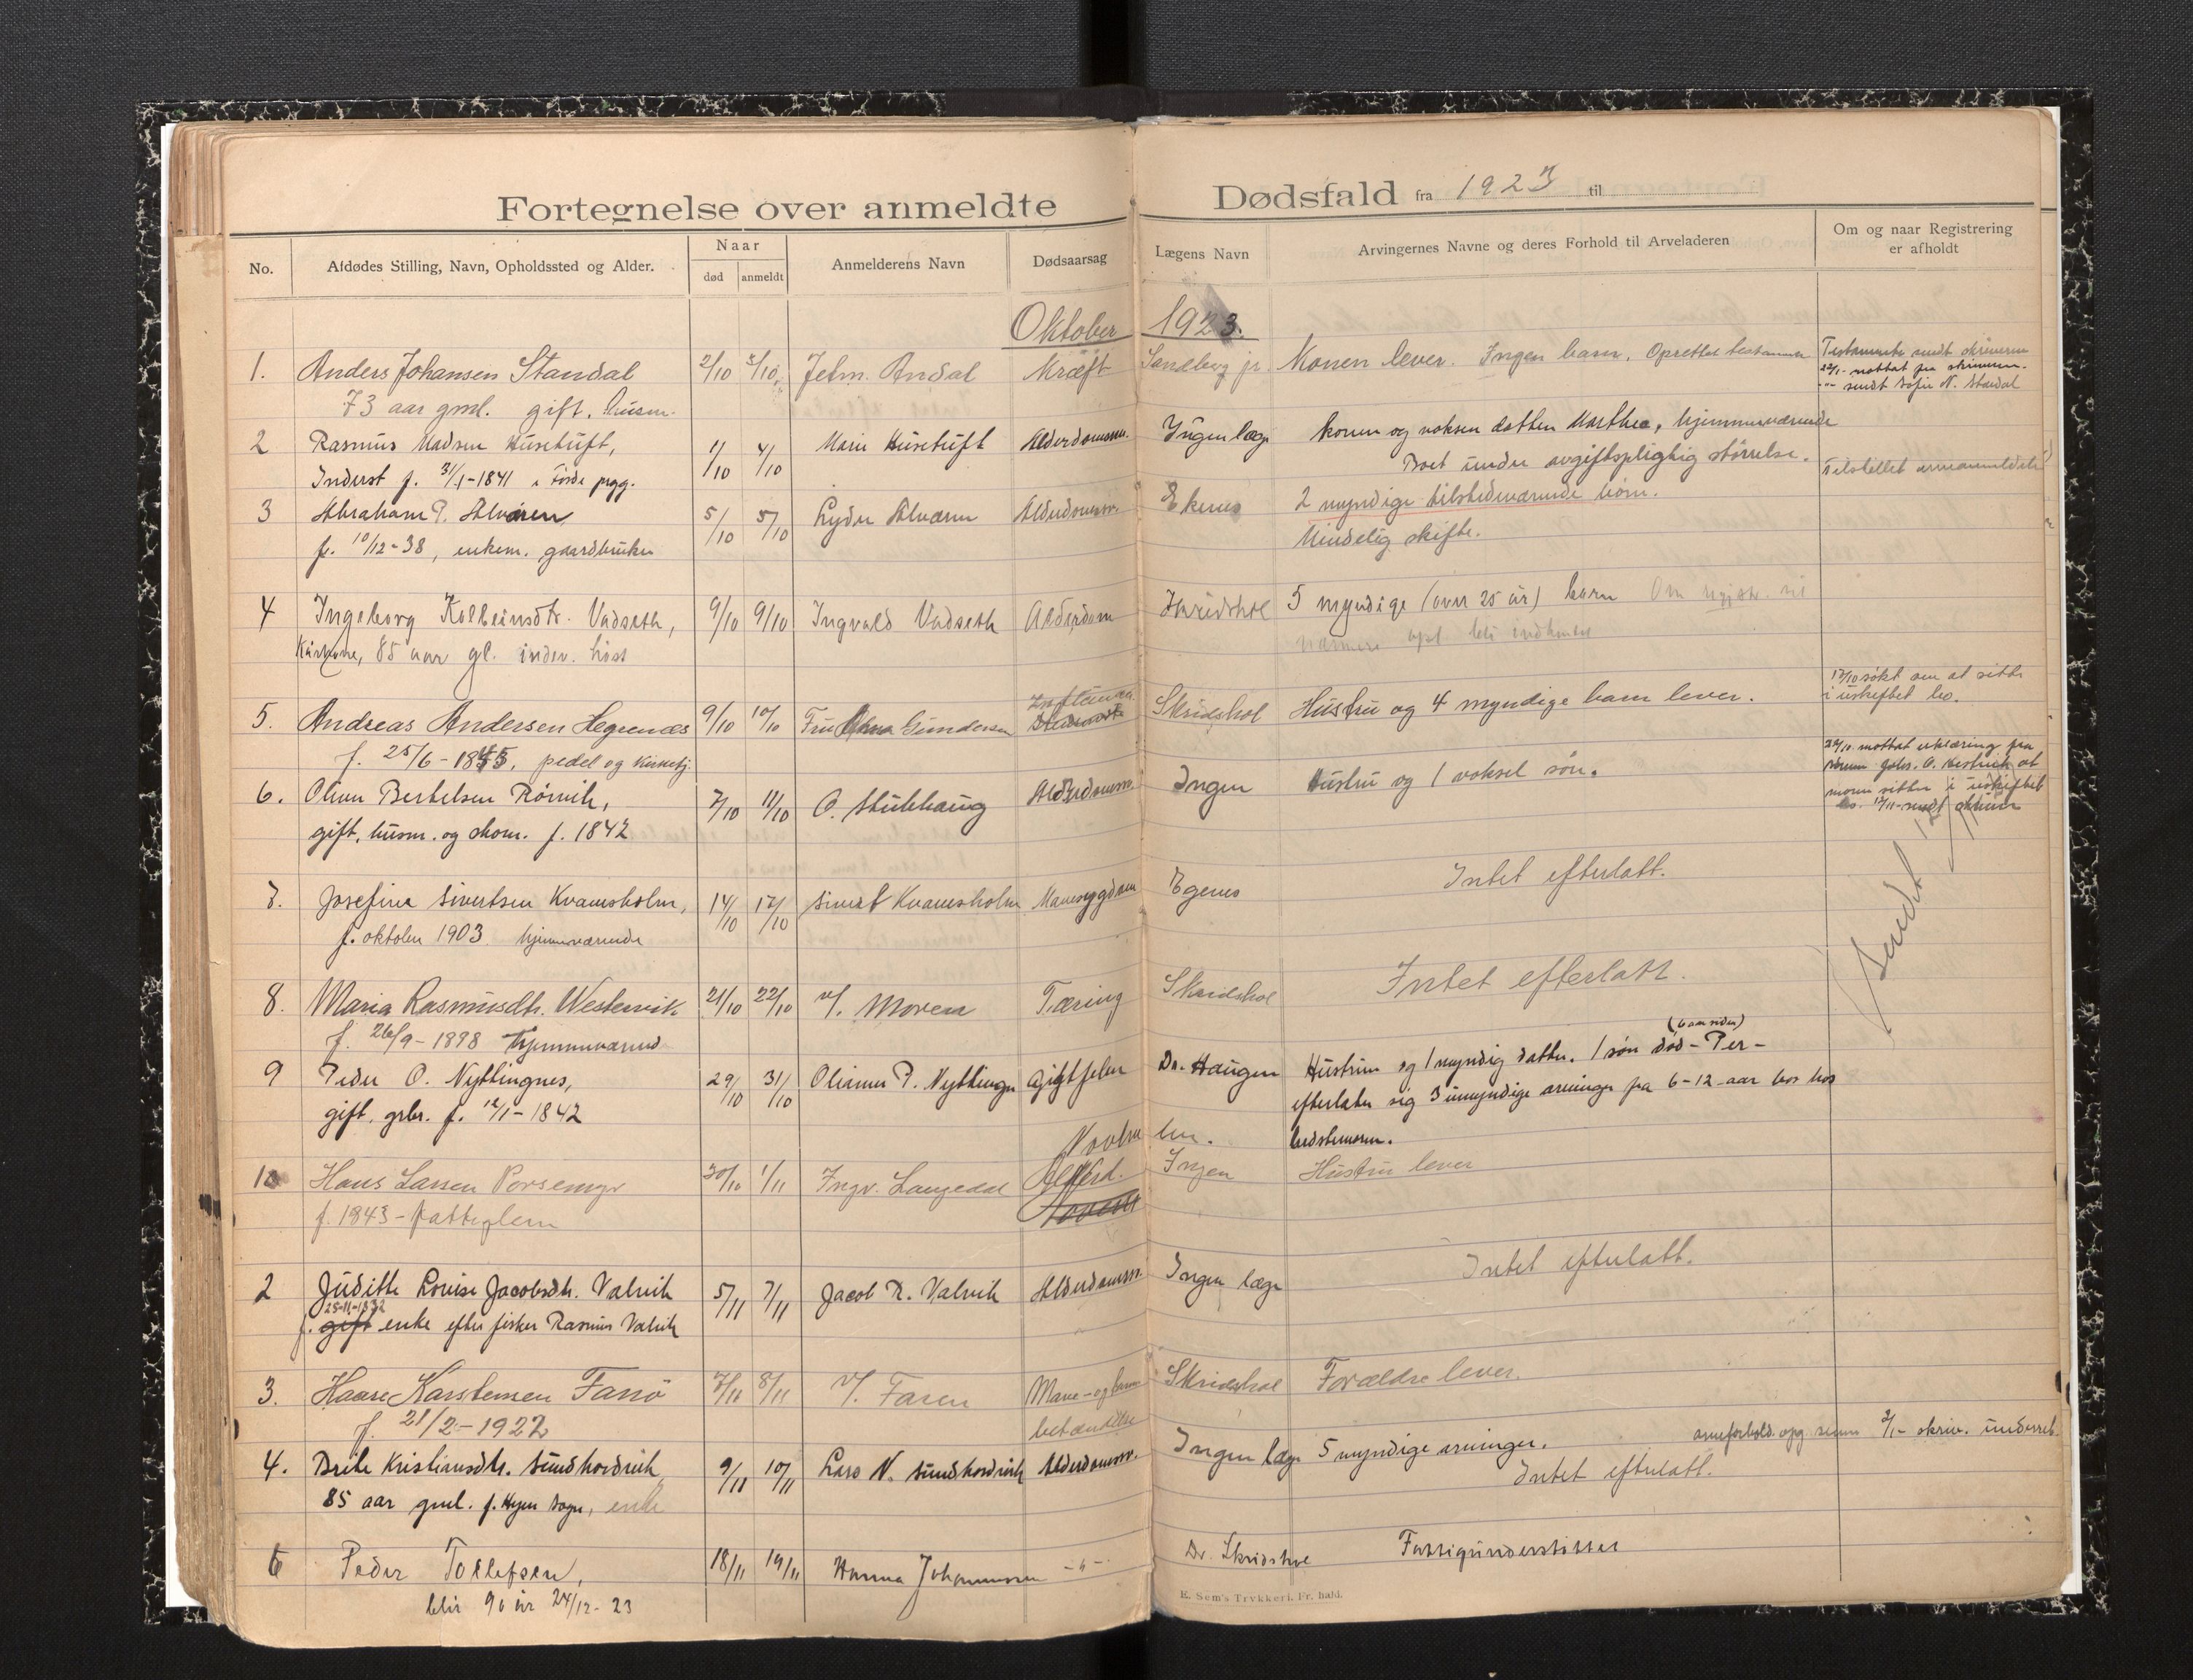 Fortegnelse over anmeldte Dødsfald fra 1923 til
No. Afdødes Stilling, Navn, Opholdssted og Alder. Naar død anmeldt Anmelderens Navn Dødsaarsag Lægens Navn Arvingernes Navne og deres Forhold til Arveladeren Om og naar Registrering er afholdt
Oktober 1923.
1. Anders Johansen Standal 2/10 3/10 Jetm. Andal Kræft Sandberg jr. Konen lever. Ingen barn. Oprettet testamente Testamente sendt skriveren
73 aar gml. gift. husm. 22/1 - mottat fra skriveren.
-"- sendt Sofie N. Standal
2 Rasmus Madsen Husetuft, 1/10 4/10 Marie Husetuft Alderdomssv. Ingen læge konen og voksen datter Marthea, hjemmeværende
Inderst f. 31/1-1841 i Førde prgj. Boet under avgiftspligtig størrelse.
3 Abraham P. Alværen 5/10 5/10 Lyder Alværen Alderdomssv. Ekenes 2 myndige tilstedeværende børn.
f. 10/12-38, enkem. gaardbruker Mindelig skifte.
4 Ingeborg Kolbeinsdtr. Vadseth, 9/10 9/10 Ingvald Vadseth Alderdom Skridshol 5 myndige (over 25 år) barn
85 aar gl.
5. Andreas Andersen Hegrenæs 9/10 10/10 Fru Anna Gundersen Skridshol Hustru og 4 myndige barn lever. 17/10 søkt om at sitte
i uskiftet bo.
f. 25/6-1845, pedel og kirketj.
6. Oliver Bertelsen Rørvik, 7/10 12/10 O. Stubhaug Alderdomssv. Ingen Hustru og 1 voksel søn. 22/10 mottat erklæring fra
gift, husm. og skom. f. 1842 moren sitter i uskiftet
bo. 17/11 sendt skriver
7. Josefine Sivertsen Kvamesholm, 14/10 17/10 Sivert Kvamesholm Mavesygdom Egenes Intet efterlatt.
f. oktober 1903 hjemmeværende
Sendt
8. Maria Rasmusdtr. Westervik 21/10 22/10 v/. Moren Tæring Skridshol Intet efterlatt.
f. 26/9-1898 hjemmeværend
9 Peder O. Nyttingnes, 29/10 31/10 Olianna P. Nyttingn Dr. Haugen Hustrun og 1 myndig datter. 1 søn død - Per -
gift, grbr. f. 12/1-1842 efterlater sig 3 umyndige arvinger fra 6-12 aar hos
bedstemoren.
November.
10 Hans Larsen 30/10 1/11 Ingv. Langedal Ingen Hustru lever
f. 1843 -
2 Judithe Lovise Jacobsdtr. Valvik 5/11 7/11 Jacob R. Valvik Alderdomssv. Ingen læge Intet efterlatt.
25-11-1832
f. gift enke efter fisker Rasmus Valvik
3. Kaare Karstensen Fanø 7/11 8/11 v/. Faren Mave- og Skridshol Forældre lever.
f. 21/2-1922 betændelse
4. Brite Kristiansdtr. Sundhordvik 9/11 10/11 Lars N. Sundhordvik Alderdomssv. Ingen læge 5 myndige arvinger. arveforhold. opg. 2/1- skriv. underret
85 aar gml. f. Hyen Sogn, enke Intet efterlatt.
6 Peder Tollefsen, 18/11 19/11 Hanna Johannessen -"- Dr. Skridshol Fattigunderstøttet
blir 90 år 24/12-23
E. Sem's Trykkeri, Fr. hald.